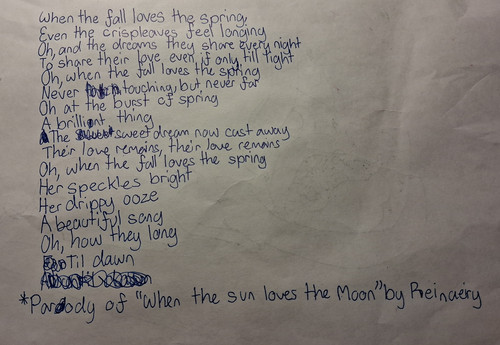 When the fall loves the spring,
Even the crispleaves feel longing
Oh, and the dreams they share every night
To share their love even if only till light
Oh, when the fall loves the spring
Never touching, but never far
Oh at the burst of spring
A brilliant thing
The sweet dream now cast away
Their love remains, their love remains
Oh, when the fall loves the spring
Her speckles bright
Her drippy ooze
A beautiful song
Oh, how they long
Til dawn
*Parody of "When the sun loves the Moon" by Reinaeiry